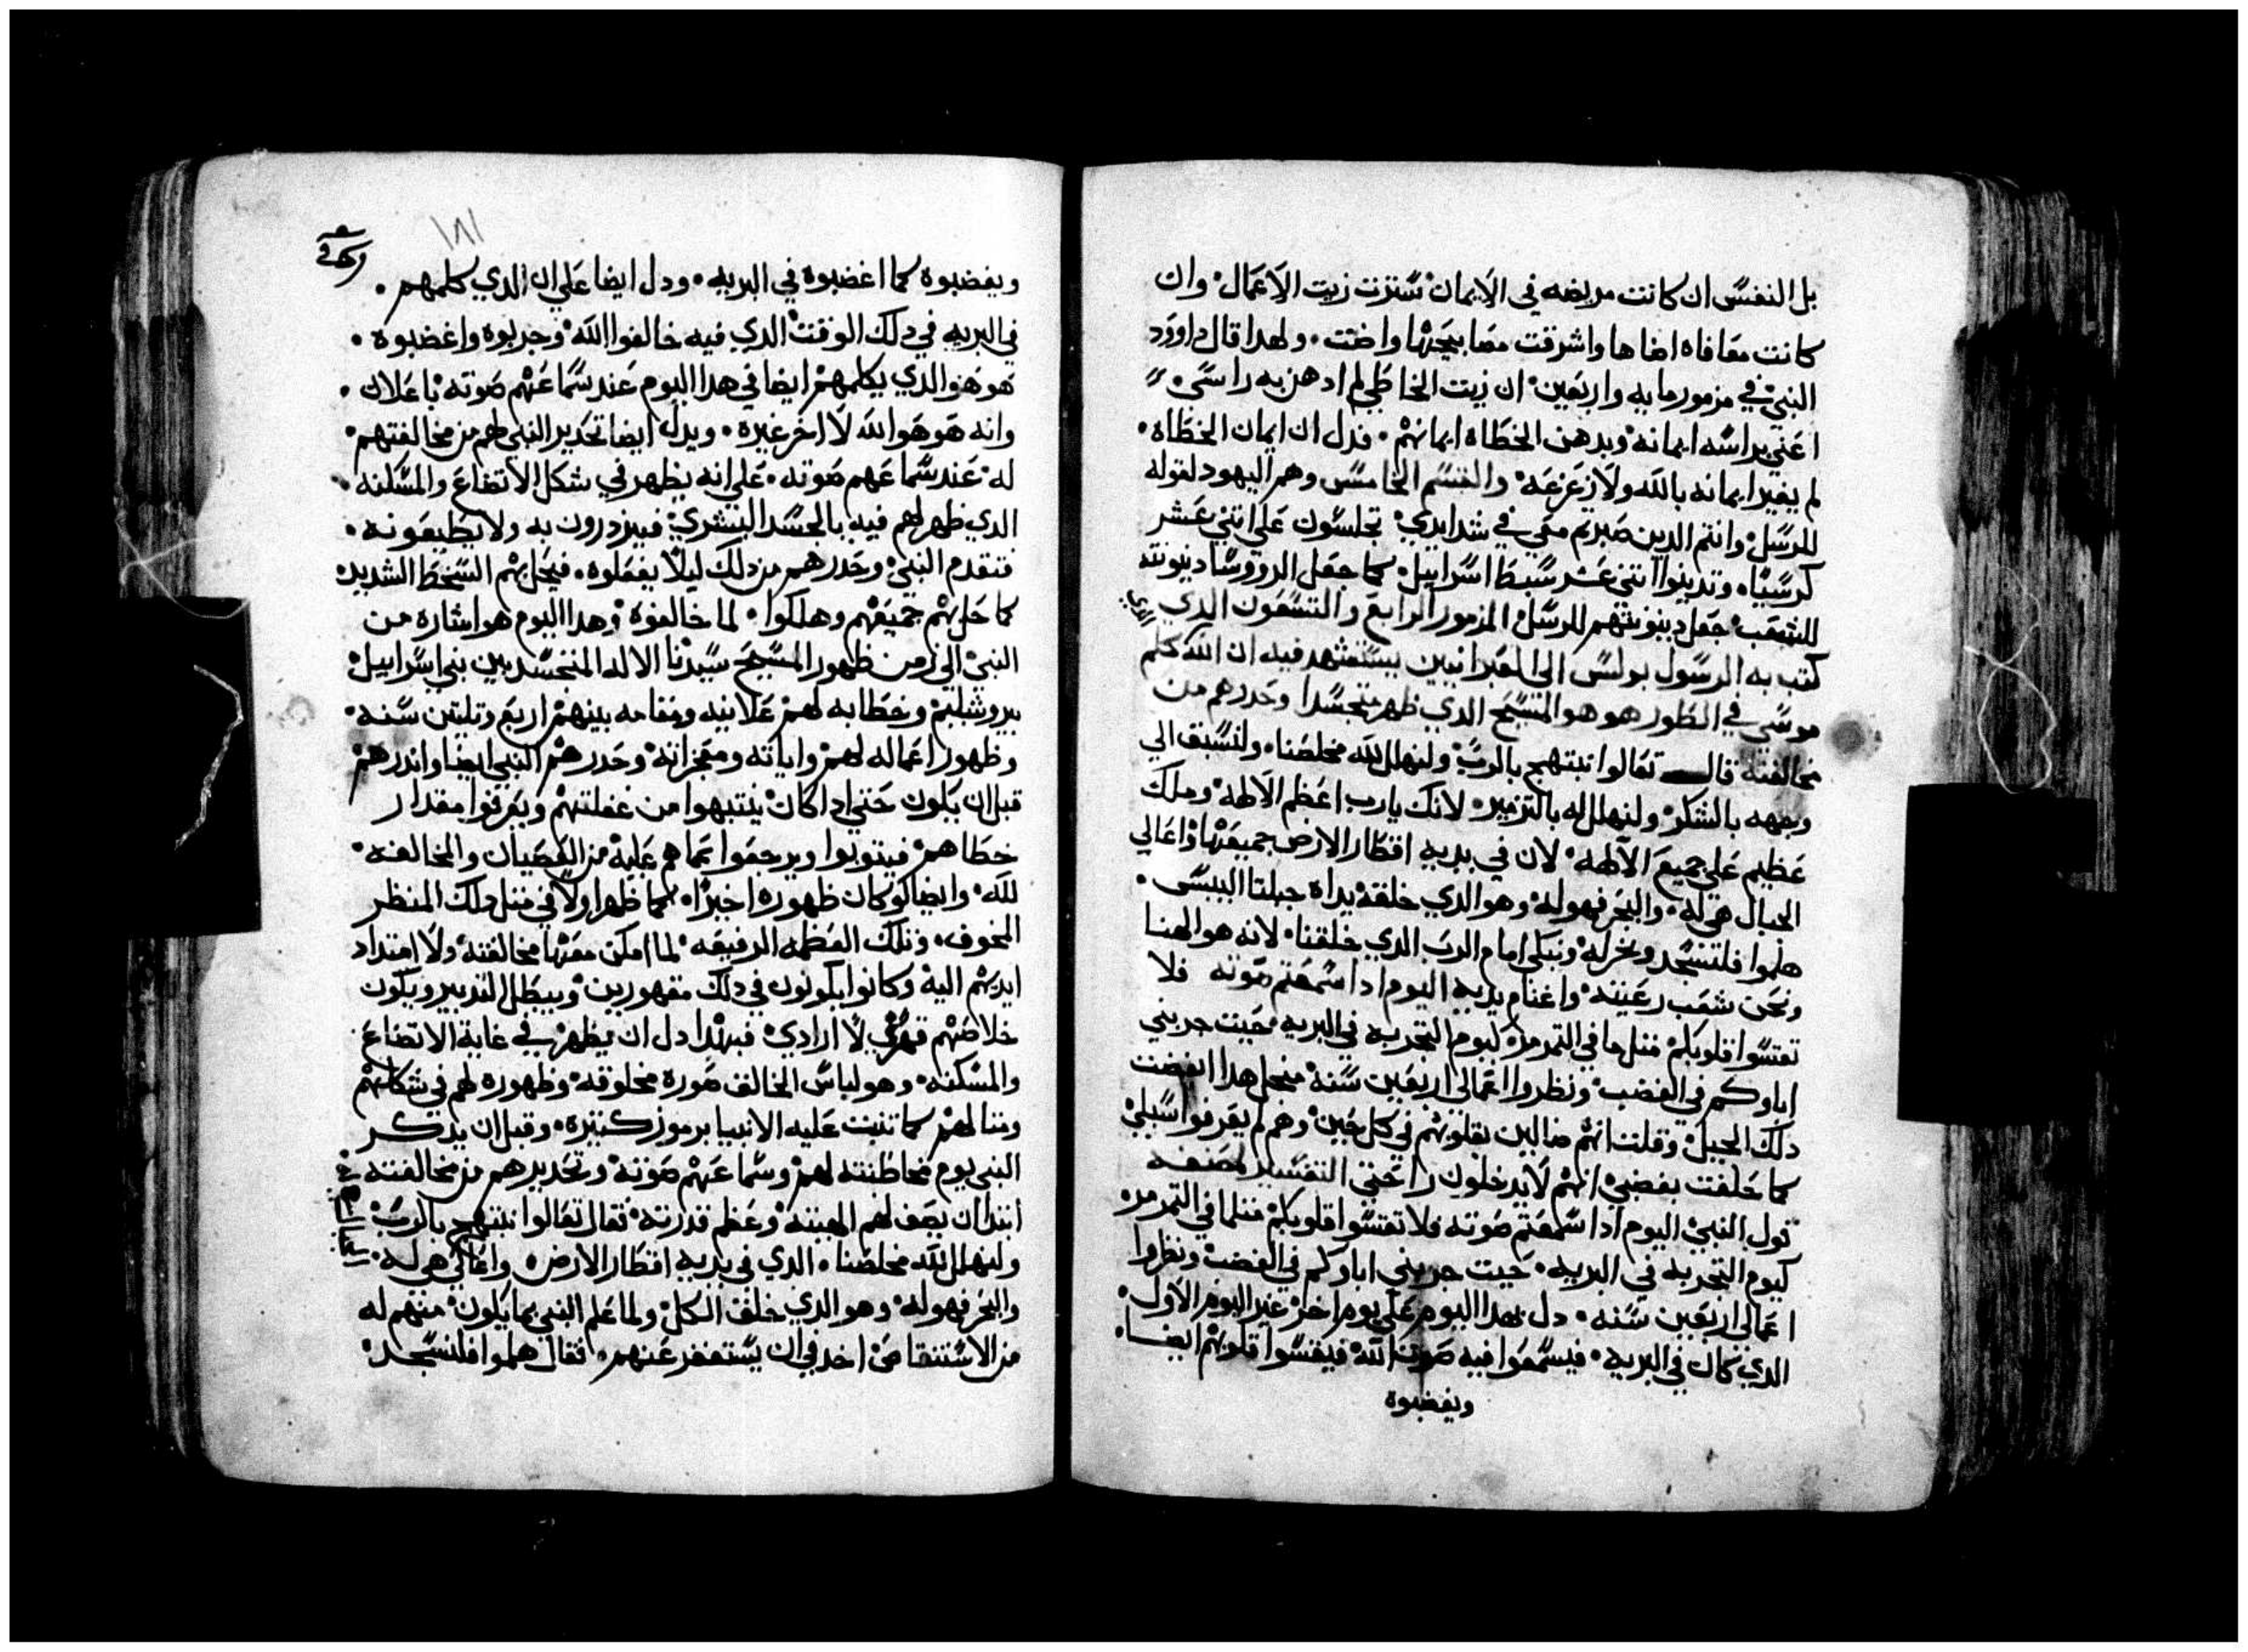 بل النفس ان كانت مريضه في الايمان سترت زيت الاعمال وان
كانت معافاه اضاها واشرقت مصابيحها واضت ولهدا قال داوود
النبي في مزمور مايه واربعين ان زيت الخاطي لم ادهن به راسي
اعني براسه ايمانه وبدهن الخطاه ايمانهم فدل ان ايمان الخطاه
لم يغير ايمانه بالله ولا زعزعه والقسم الخامس وهم اليهود لقوله
للرسل وانتم الدين صبرتم معي في شدايدي تجلسون علي اتني عشر
كرسيا وتدينوا اتني عشر سبط اسراييل كما جعل الرووسا دينونته
للشعب جعل دينونتهم للرسل المزمور الرابع والتسعون الدي
كتب به الرسول بولس الي العبرانيين يستشهد فيه ان الله كلم
موسي في الطور هو هو المسيح الدي ظهر متجسدا وحدرهم من
مخالفته قال تعالوا نبتهج بالرب ولنهلل لله مخلصنا ولنسبق الي
وجهه بالشكر ولنهلل له بالتزمير لانك يارب اعظم الالهه وملك
عظيم علي جميع الالهه لان في يديه اقطار الارض جميعها واعالي
الجبال هي له والبحر فهو له وهو الدي خلقه يداه جبلتا اليبس
هلموا فلنسجد ونخر له ونبكي امام الرب الدي خلقنا لانه هو الهنا
ونحن شعب رعيته واغنام يديه اليوم ادا سمعتم صوته فلا
تقسوا قلوبكم متل ما في التمرمر كيوم التجربه في البريه حيت جربني
اباوكم في الغضب ونظروا اعمالي اربعين سنه فنجل هدا ابغضت
دلك الجيل وقلت انهم ضالين بقلوبهم في كل حين وهم لم يعرفوا سبلي
كما حلفت بغضبي انهم لا يدخلون راحتي التفسير لمصنفه
قول النبي اليوم ادا سمعتم صوته فلا تقسوا قلوبكم متلما في التمرمر
كيوم التجربه في البريه حيت جربني اباوكم في الغضب ونظروا
اعمالي اربعين سنه دل بهدا اليوم علي يوم اخر غير اليوم الاول
الدي كان في البريه فيسمعوا فيه صوت الله فيقسوا قلوبهم ايضا
ويغضبوه
١٨١
ويغضبوه كما اغضبوه في البريه ودل ايضا علي ان الدي كلمهم
في البريه في دلك الوقت الدي فيه خالفوا الله وجربوه واغضبوه
هو هو الدي يكلمهم ايضا في هدا اليوم عند سماعهم صوته باعلان
وانه هو هو الله لا اخر غيره ويدل ايضا تحدير النبي لهم من مخالفتهم
له عند سماعهم صوته علي انه يظهر في شكل الاتضاع والمسكنه
الدي ظهر لهم فيه بالجسد البشري فيزدرون به ولا يطيعونه
فتقدم النبي وحدرهم من دلك ليلا يفعلوه فيحل بهم السخط الشديد
كما حل بهم جميعهم وهلكوا لما خالفوه وهدا اليوم هو اشاره من
النبي الي زمن ظهور المسيح سيدنا الاله المتجسد بين بني اسراييل
بيروشليم وخطابه لهم علانيه ومقامه بينهم اربع وتلتين سنه
وظهور اعماله لهم واياته ومعجزاته وحدرهم النبي ايضا واندرهم
قبل ان يكون حتي ادا كان ينتبهوا من غفلتهم ويعرفوا مقدار
خطاهم فيتوبوا ويرجعوا عما هم عليه من العصيان والمخالفه
لله وايضا لو كان ظهوره اخيرا كما ظهر اولا في متل دلك المنظر
المخوف وتلك العظمه الرفيعه لما امكن معها مخالفته ولا امتداد
ايديهم اليه وكانوا يكونون في دلك مقهورين ويبطل التدبير ويكون
خلاصهم قهري لا ارادي فبهدا دل ان يظهر في غاية الاتضاع
والمسكنه وهو لباس الخالق صوره مخلوقه وظهوره لهم في شكلهم
ومتالهم كما تنبت عليه الانبيا برموز كتيره وقبل ان يدكر
النبي يوم مخاطبته لهم وسماعهم صوته وتحديرهم من مخالفته
ابتدا ان يصف لهم الهيبته وعظم قدرته فقال تعالوا نبتهج بالرب
ولنهلل لله مخلصنا الدي في يديه اقطار الارض واعالي هي له
والبحر فهو له وهو الدي خلق الكل ولما علم النبي بما يكون منهم له
من الاستنقاص اخد في ان يستغفر عنهم فقال هلموا فلنسجد